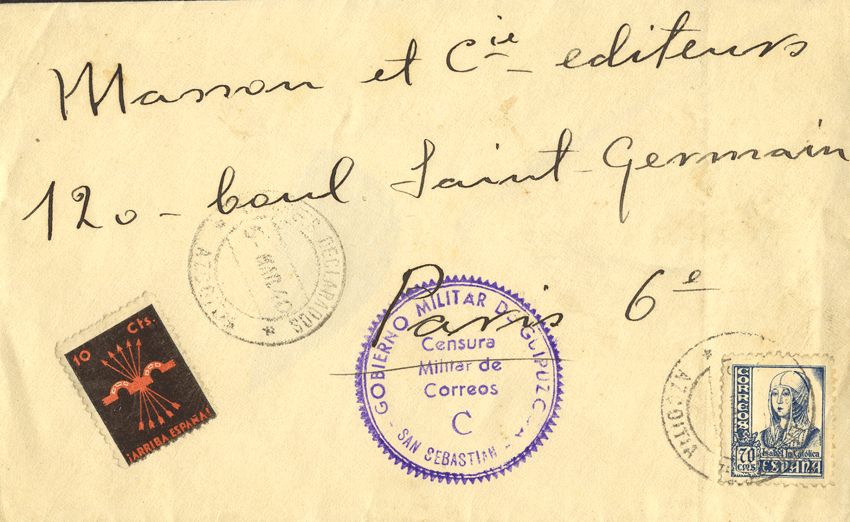 Masson et Cie editeurs
120 - boul. Saint-Germain
Paris 6e
VALORES DECLARADOS
5 - MAR. 40
* AZCOITIA *
10 Cts.
¡ARRIBA ESPAÑA!
GOBIERNO MILITAR DE GUIPUZCOA
Censura
Militar de
Correos
C
- SAN SEBASTIAN -
* AZCOITIA
CORREOS
70
CTS
Isabel la Católica
ESPAÑA